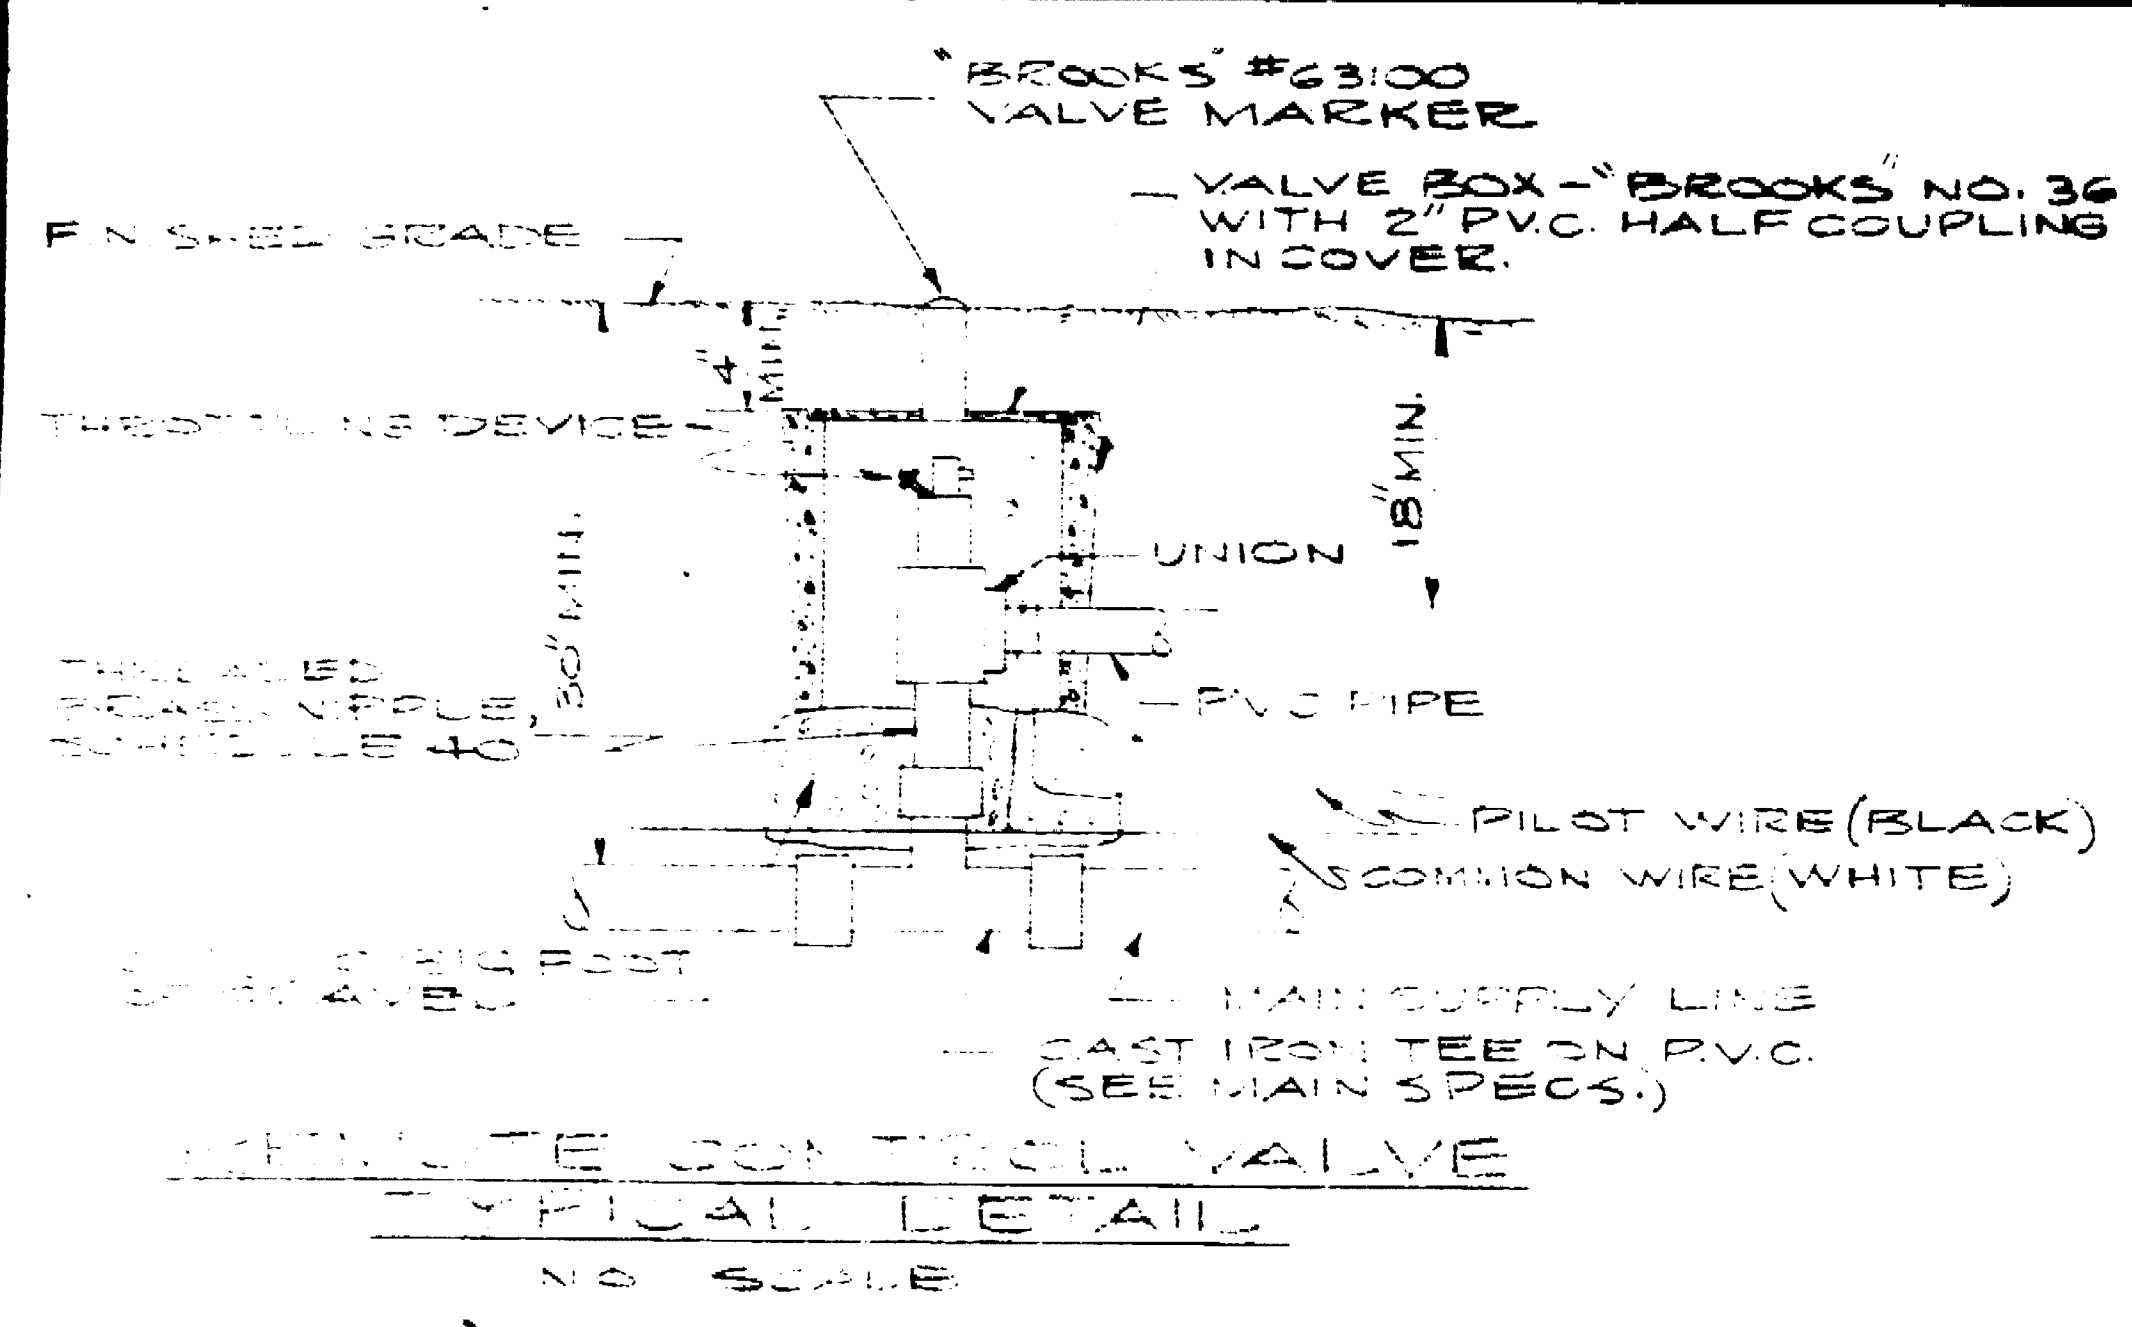 "BROOKS" #63100
VALVE MARKER
VALVE BOX - "BROOKS" NO. 36
WITH 2" P.V.C. HALF COUPLING
IN COVER.
FINISHED GRADE
4" MIN.
THROTTLING DEVICE
18" MIN.
UNION
30" MIN.
THREADED
BRASS NIPPLE,
SCHEDULE 40
PVC PIPE
PILOT WIRE (BLACK)
COMMON WIRE (WHITE)
CUBIC FOOT
OF GRAVEL
MAIN SUPPLY LINE
CAST IRON TEE ON P.V.C.
(SEE MAIN SPECS.)
REMOTE CONTROL VALVE
TYPICAL DETAIL
NO SCALE